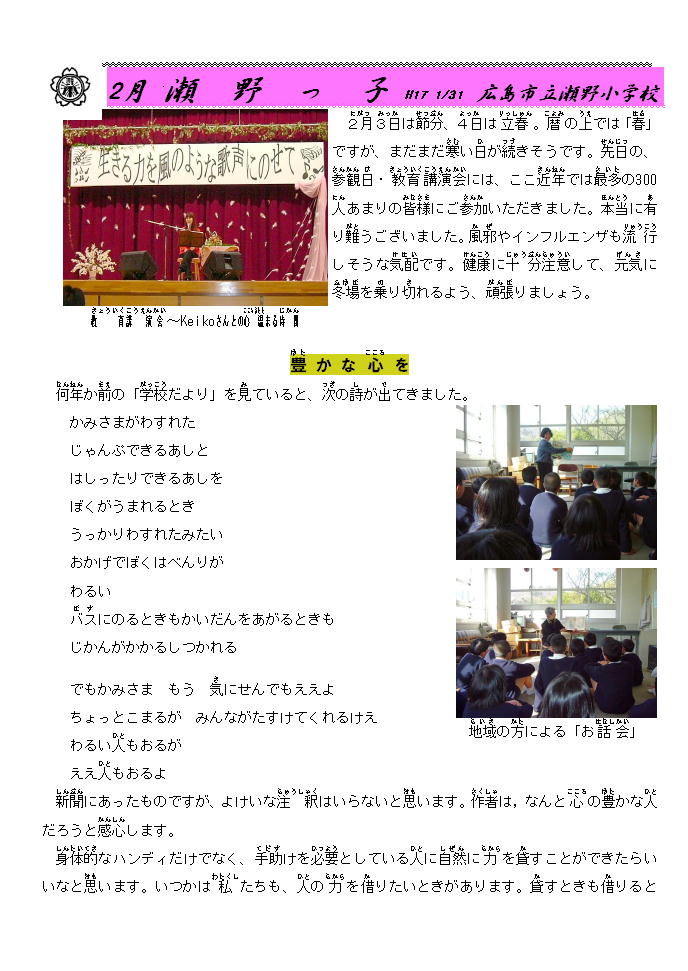 2月 瀬野っ子 H17 1/31 広島市立瀬野小学校
生きる力を風のような歌声にのせて
教育講演会～Keikoさんとの心温まる時間
2月3日は節分、4日は立春。暦の上では「春」
ですが、まだまだ寒い日が続きそうです。先日の、
参観日・教育講演会には、ここ近年では最多の300
人あまりの皆様にご参加いただきました。本当に有
り難うございました。風邪やインフルエンザも流行
しそうな気配です。健康に十分注意して、元気に
冬場を乗り切れるよう、頑張りましょう。
豊かな心を
何年か前の「学校だより」を見ていると、次の詩が出てきました。
かみさまがわすれた
じゃんぷできるあしと
はしったりできるあしを
ぼくがうまれるとき
うっかりわすれたみたい
おかげでぼくはべんりが
わるい
バスにのるときもかいだんをあがるときも
じかんがかかるしつかれる
でもかみさま　もう　気にせんでもええよ
ちょっとこまるが　みんながたすけてくれるけえ
わるい人もおるが
ええ人もおるよ
地域の方による「お話会」
新聞にあったものですが、よけいな注釈はいらないと思います。作者は，なんと心の豊かな人
だろうと感心します。
身体的なハンディだけでなく、手助けを必要としている人に自然に力を貸すことができたらい
いなと思います。いつかは私たちも、人の力を借りたいときがあります。貸すときも借りると